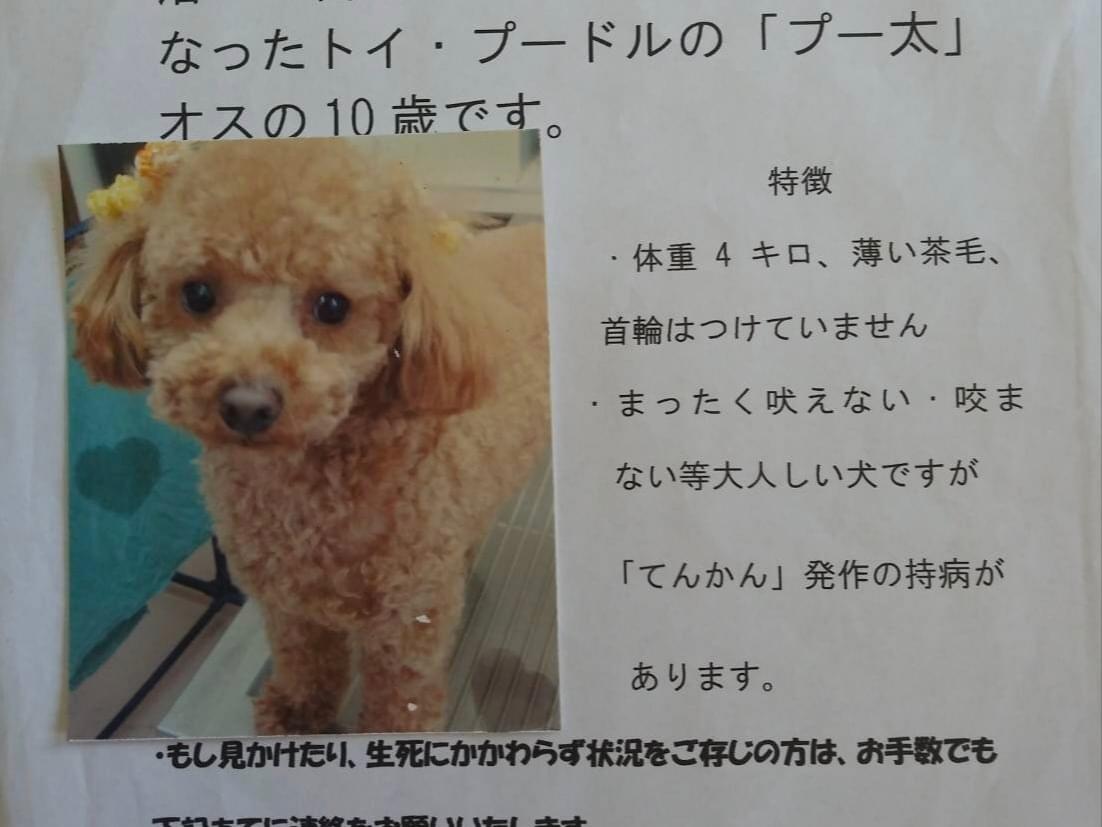 なったトイ・プードルの「プー太」
オスの10歳です。
特徴
・体重 4 キロ、薄い茶毛、
首輪はつけていません
・まったく吠えない・咬ま
ない等大人しい犬ですが
「てんかん」発作の持病が
あります。
・もし見かけたり、生死にかかわらず状況をご存じの方は、お手数でも
下記あてに連絡をお願いいたします